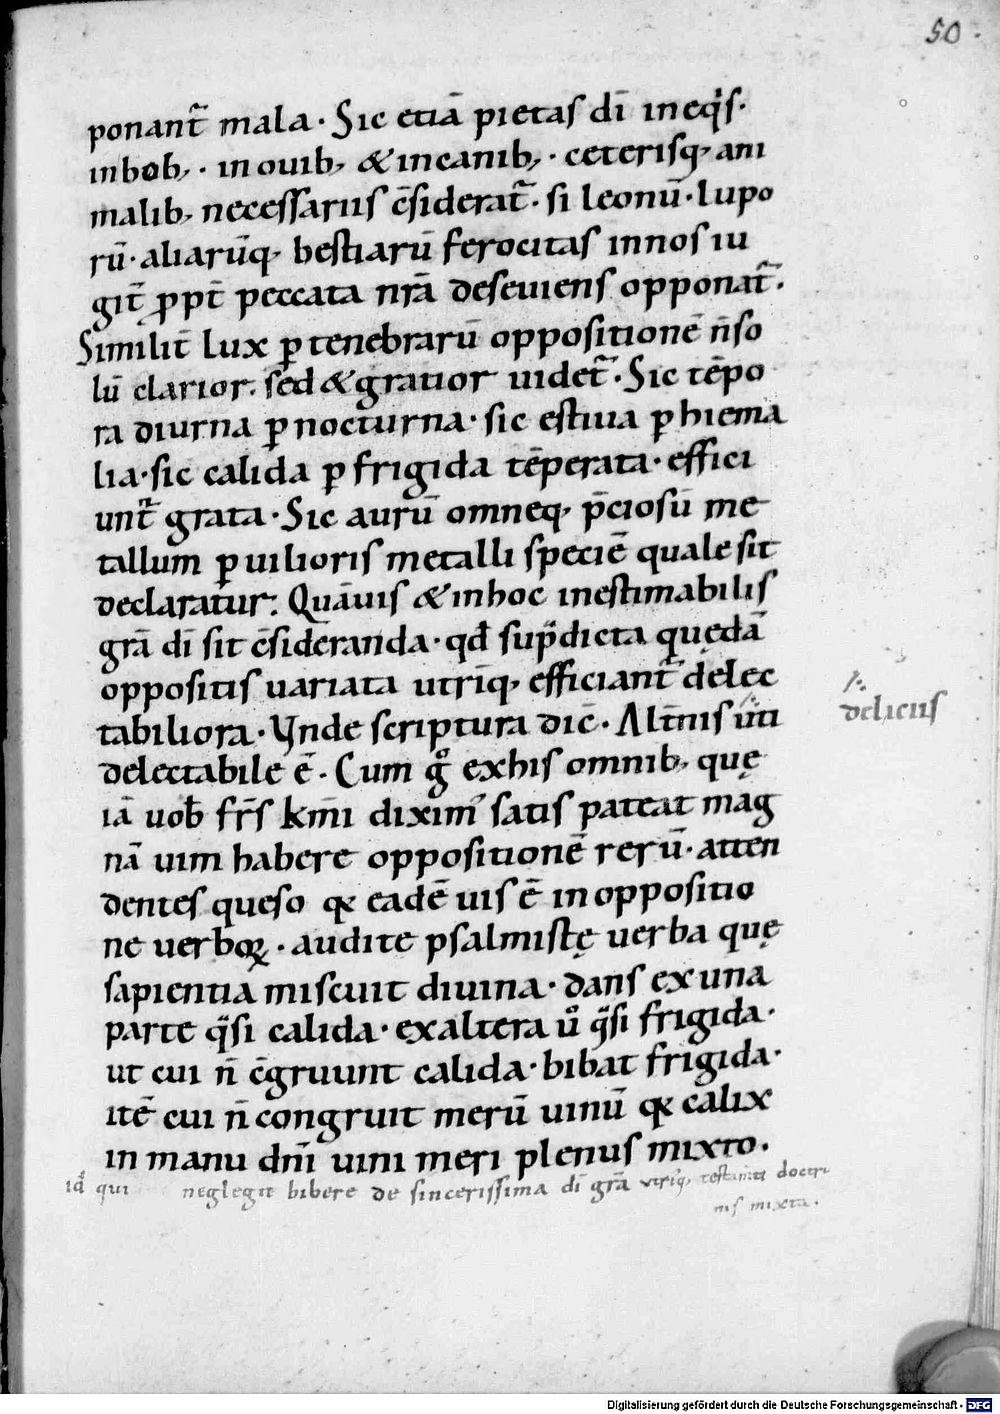 50
ponant᷑ mala · Sic etiā pietas dī in eq̇s ·
in bob; · in ouib; & in canib; · ceterisq; ani
malib; necessariis c̄siderat᷑ · si leonū · lupo
rū · aliarūq; bestiarū ferocitas in nos iu
git̄ ꝓpt̄ peccata nr̄a deseuiens opponat᷑ ·
Similit̄ lux ꝑ tenebrarū oppositionē n̄ so
lū clarior · sed & gratior uidet᷑ · Sic tēpo
ra diurna ꝑ nocturna · sic estiua ꝑ hiema
lia · sic calida ꝑ frigida tēperata · effici
unt᷑ grata · Sic aurū omneq; p̄ciosū me
tallum ꝑ uilioris metalli speciē quale sit
declaratur · Quāuis & in hoc inestimabilis
gr̄a dī sit c̄sideranda · qđ sup̄dicta quędā
oppositis uariata utriq; efficiant᷑ delec
tabiliora · Vnde scriptura dic̄ · Alt̄nis uti
deliciis
delectabile ē · Cum g̊ ex his omnib; quę
iā uob̄ fr̄s km̄i dixim᷒ satis pateat mag
nā uim habere oppositionē rerū · atten
dentes queso qꝛ eadē uis ē in oppositio
ne uerboꝝ · audite psalmistę uerba quę
sapientia miscuit diuina · dans ex una
parte q̄si calida · ex altera ů q̄si frigida ·
ut cui n̄ c̄gruunt calida · bibat frigida ·
itē cui n̄ congruit merū uinū qꝛ calix
in manu dn̄i uini meri plenus mixto ·
id̄ qui neglegit bibere de sincerissima dī gr̄a utriq; testam̄ti doctri
nis mixta ·
Digitalisierung gefördert durch die Deutsche Forschungsgemeinschaft - DFG